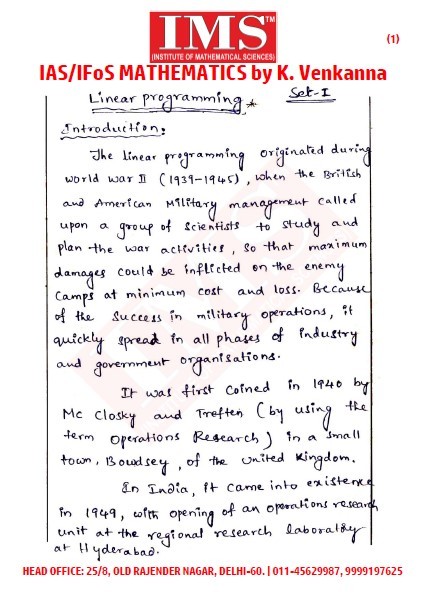 IMS™
(INSTITUTE OF MATHEMATICAL SCIENCES)
(1)
IAS/IFoS MATHEMATICS by K. Venkanna
Linear programming * Set-I
Introduction:
The linear programming originated during
world war II (1939-1945), when the British
and American Military management called
upon a group of scientists to study and
plan the war activities, so that maximum
damages could be inflicted on the enemy
camps at minimum cost and loss. Because
of the success in military operations, it
quickly spread in all phases of industry
and government organisations.
It was first coined in 1940 by
Mc Closky and Treften (by using the
term Operations Research) in a small
town, Bowdsey, of the United Kingdom.
In India, it came into existence
in 1949, with opening of an operations research
unit at the regional research laboratory
at Hyderabad.
HEAD OFFICE: 25/8, OLD RAJENDER NAGAR, DELHI-60. | 011-45629987, 9999197625